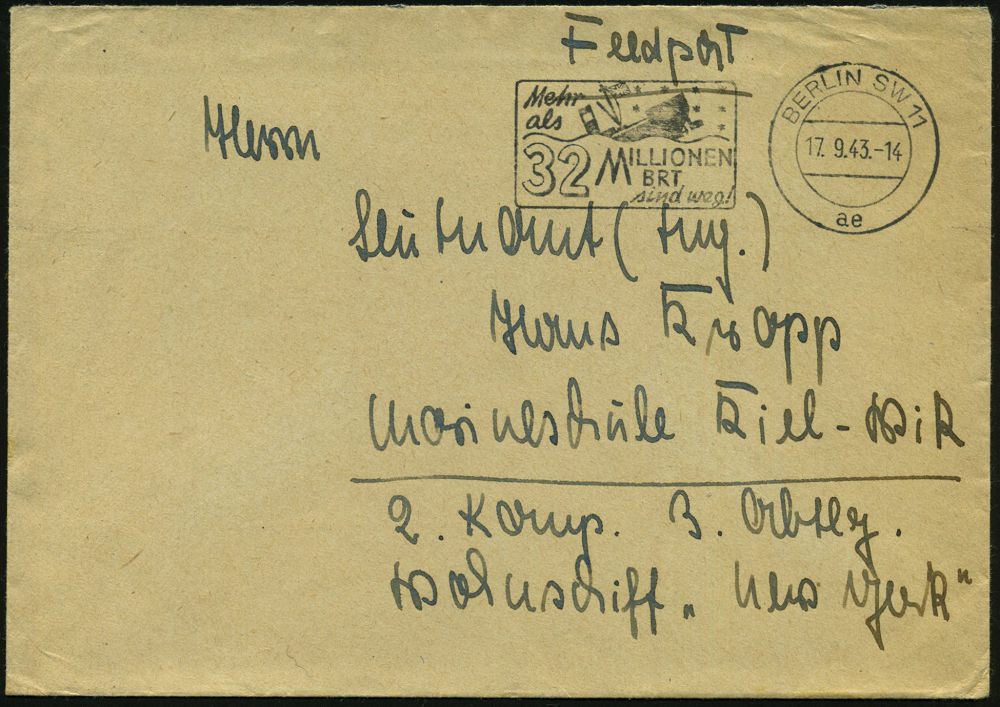 Feldpost
Mehr
als
32 MILLIONEN
BRT
sind weg!
BERLIN SW 11
17. 9.43.-14
ae
Herrn
Leutnant (Ing.)
Hans Kropp
Marineschule Kiel-Wik
2. Komp. 3. Abtlg.
Wohnschiff „New York“